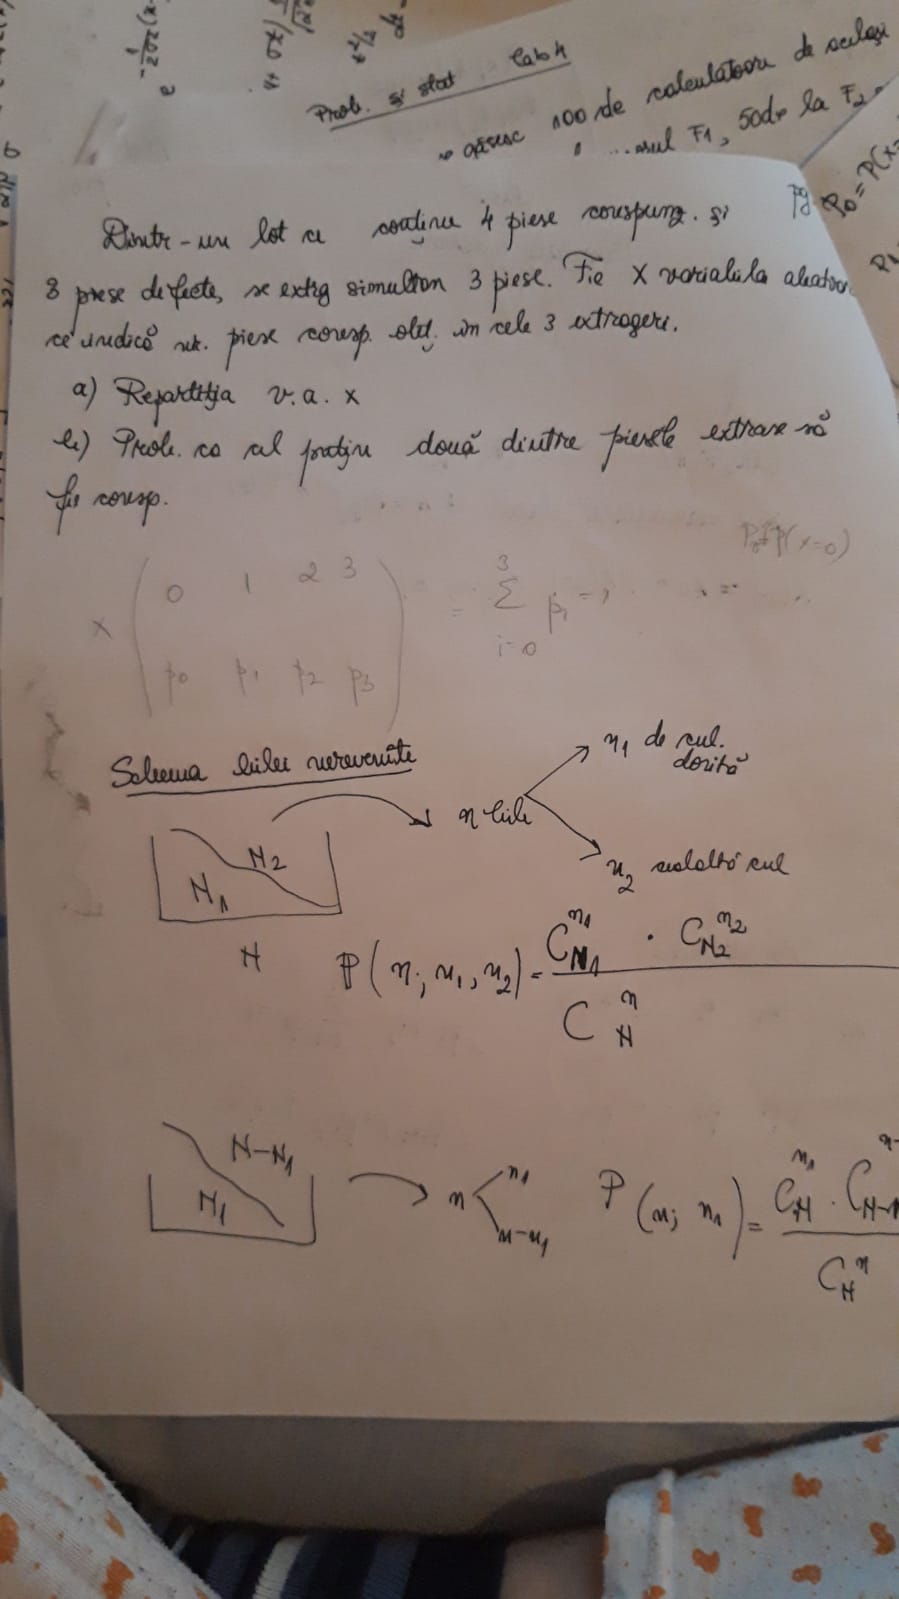 Prob. și stat Lab 4
găsesc 100 de calculatoare de același
F1, 50 de la F2
Dintr-un lot ce conține 4 piese corespunz. și
3 piese defecte, se extrg simultan 3 piese. Fie X variabila aleatoar
ce indică nr. piese coresp. obț. în cele 3 extrageri.
a) Repartiția v.a. x
b) Prob. ca cel puțin două dintre piesele extrase să
fie coresp.
P0 = P(x=0)
x ( 0 1 2 3
p0 p1 p2 p3 ) = Σ i=0 3 pi = 1
Schema bilei nerevenite
N1 N2
N
n bile
n1 de cul. dorită
n2 cealaltă cul
P(n; n1, n2) = C N1 n1 · C N2 n2 / C N n
N1 N-N1
n < n1
n-n1
P(n; n1) = C N n1 · C N-N / C N n